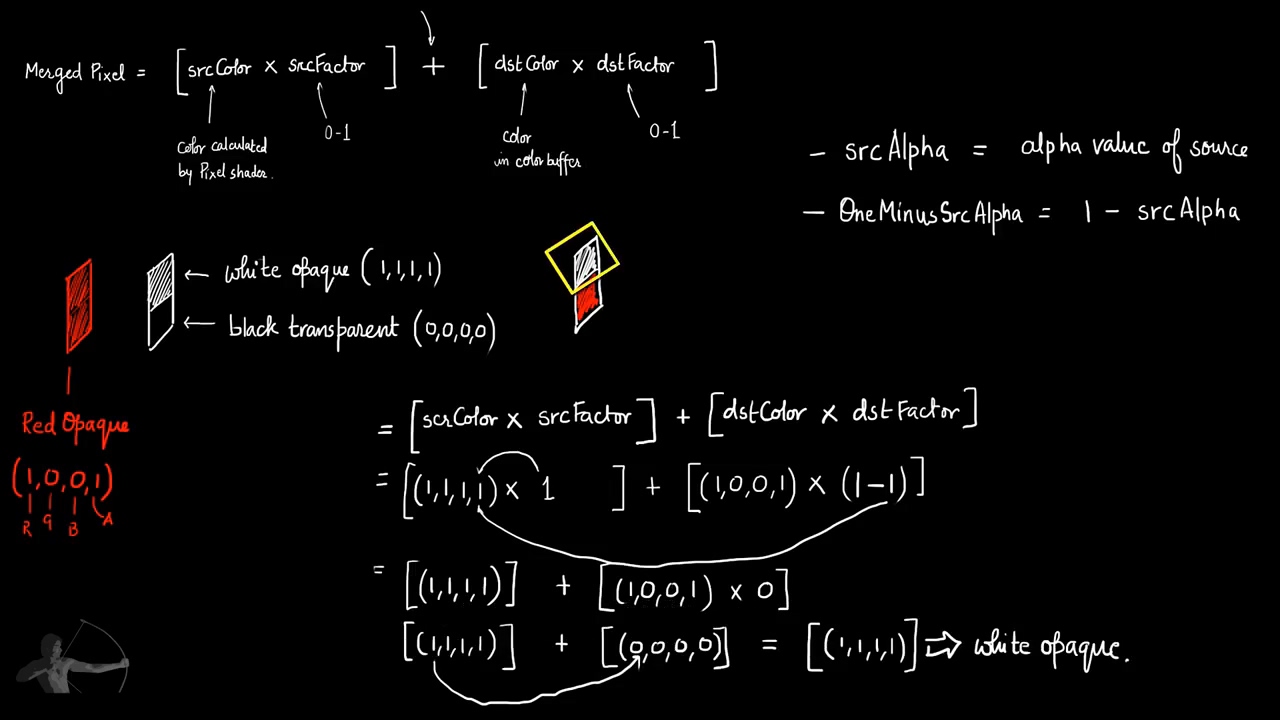 Merged Pixel = [srcColor × srcFactor] + [dstColor × dstFactor]
Color calculated
by Pixel shader.
0-1
color
in color buffer
0-1
- srcAlpha = alpha value of source
- OneMinusSrcAlpha = 1 - srcAlpha
white opaque (1,1,1,1)
black transparent (0,0,0,0)
Red Opaque
(1,0,0,1)
R G B A
= [scrColor × srcFactor] + [dstColor × dstFactor]
= [(1,1,1,1) × 1 ] + [(1,0,0,1) × (1-1)]
= [(1,1,1,1)] + [(1,0,0,1) × 0]
[(1,1,1,1)] + [(0,0,0,0)] = [(1,1,1,1)] ⇒ white opaque.